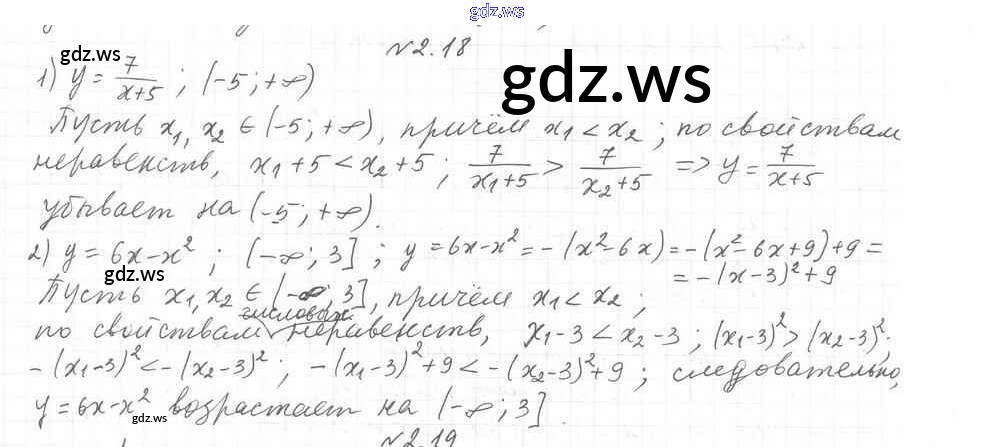 gdz.ws
№2.18
gdz.ws
gdz.ws
1) y = 7/(x+5) ; (-5 ; +∞)
Пусть x₁, x₂ ∈ (-5 ; +∞), причём x₁ < x₂ ; по свойствам
неравенств, x₁+5 < x₂+5 ; 7/(x₁+5) > 7/(x₂+5) => y = 7/(x+5)
убывает на (-5 ; +∞).
2) y = 6x-x² ; (-∞ ; 3] ; y = 6x-x² = -(x²-6x) = -(x²-6x+9)+9 =
= -(x-3)²+9
gdz.ws
Пусть x₁, x₂ ∈ (-∞ ; 3], причём x₁ < x₂ ;
числовых
по свойствам неравенств, x₁-3 < x₂-3 ; (x₁-3)² > (x₂-3)²;
-(x₁-3)² < -(x₂-3)² ; -(x₁-3)²+9 < -(x₂-3)²+9 ; следовательно,
y = 6x-x² возрастает на (-∞ ; 3]
gdz.ws
№2.19